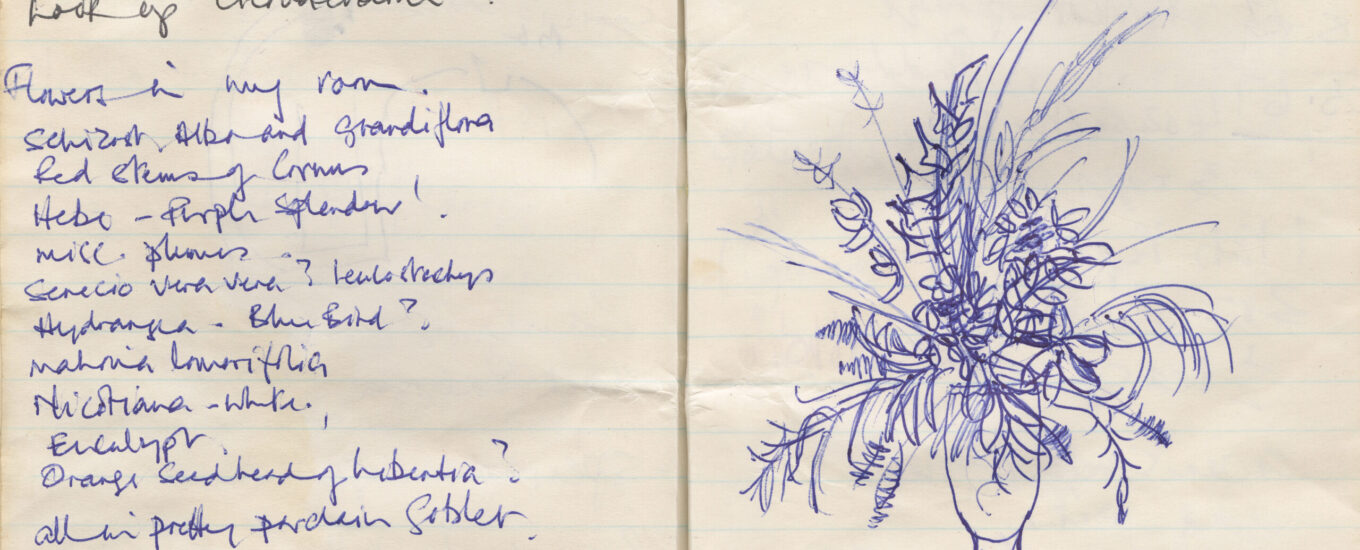 Look up
Flowers in my room.
Schizost. Alba and grandiflora
Red stems of Cornus
Hebe - Purple Splendour'.
misc. plumes.
Senecio vera vera? leucostachys
Hydrangea - Blue Bird?.
mahonia lomarifolia
Nicotiana - white.
Eucalypt.
Orange Seedhead of hibertia?
all in pretty porcelain Goblet.